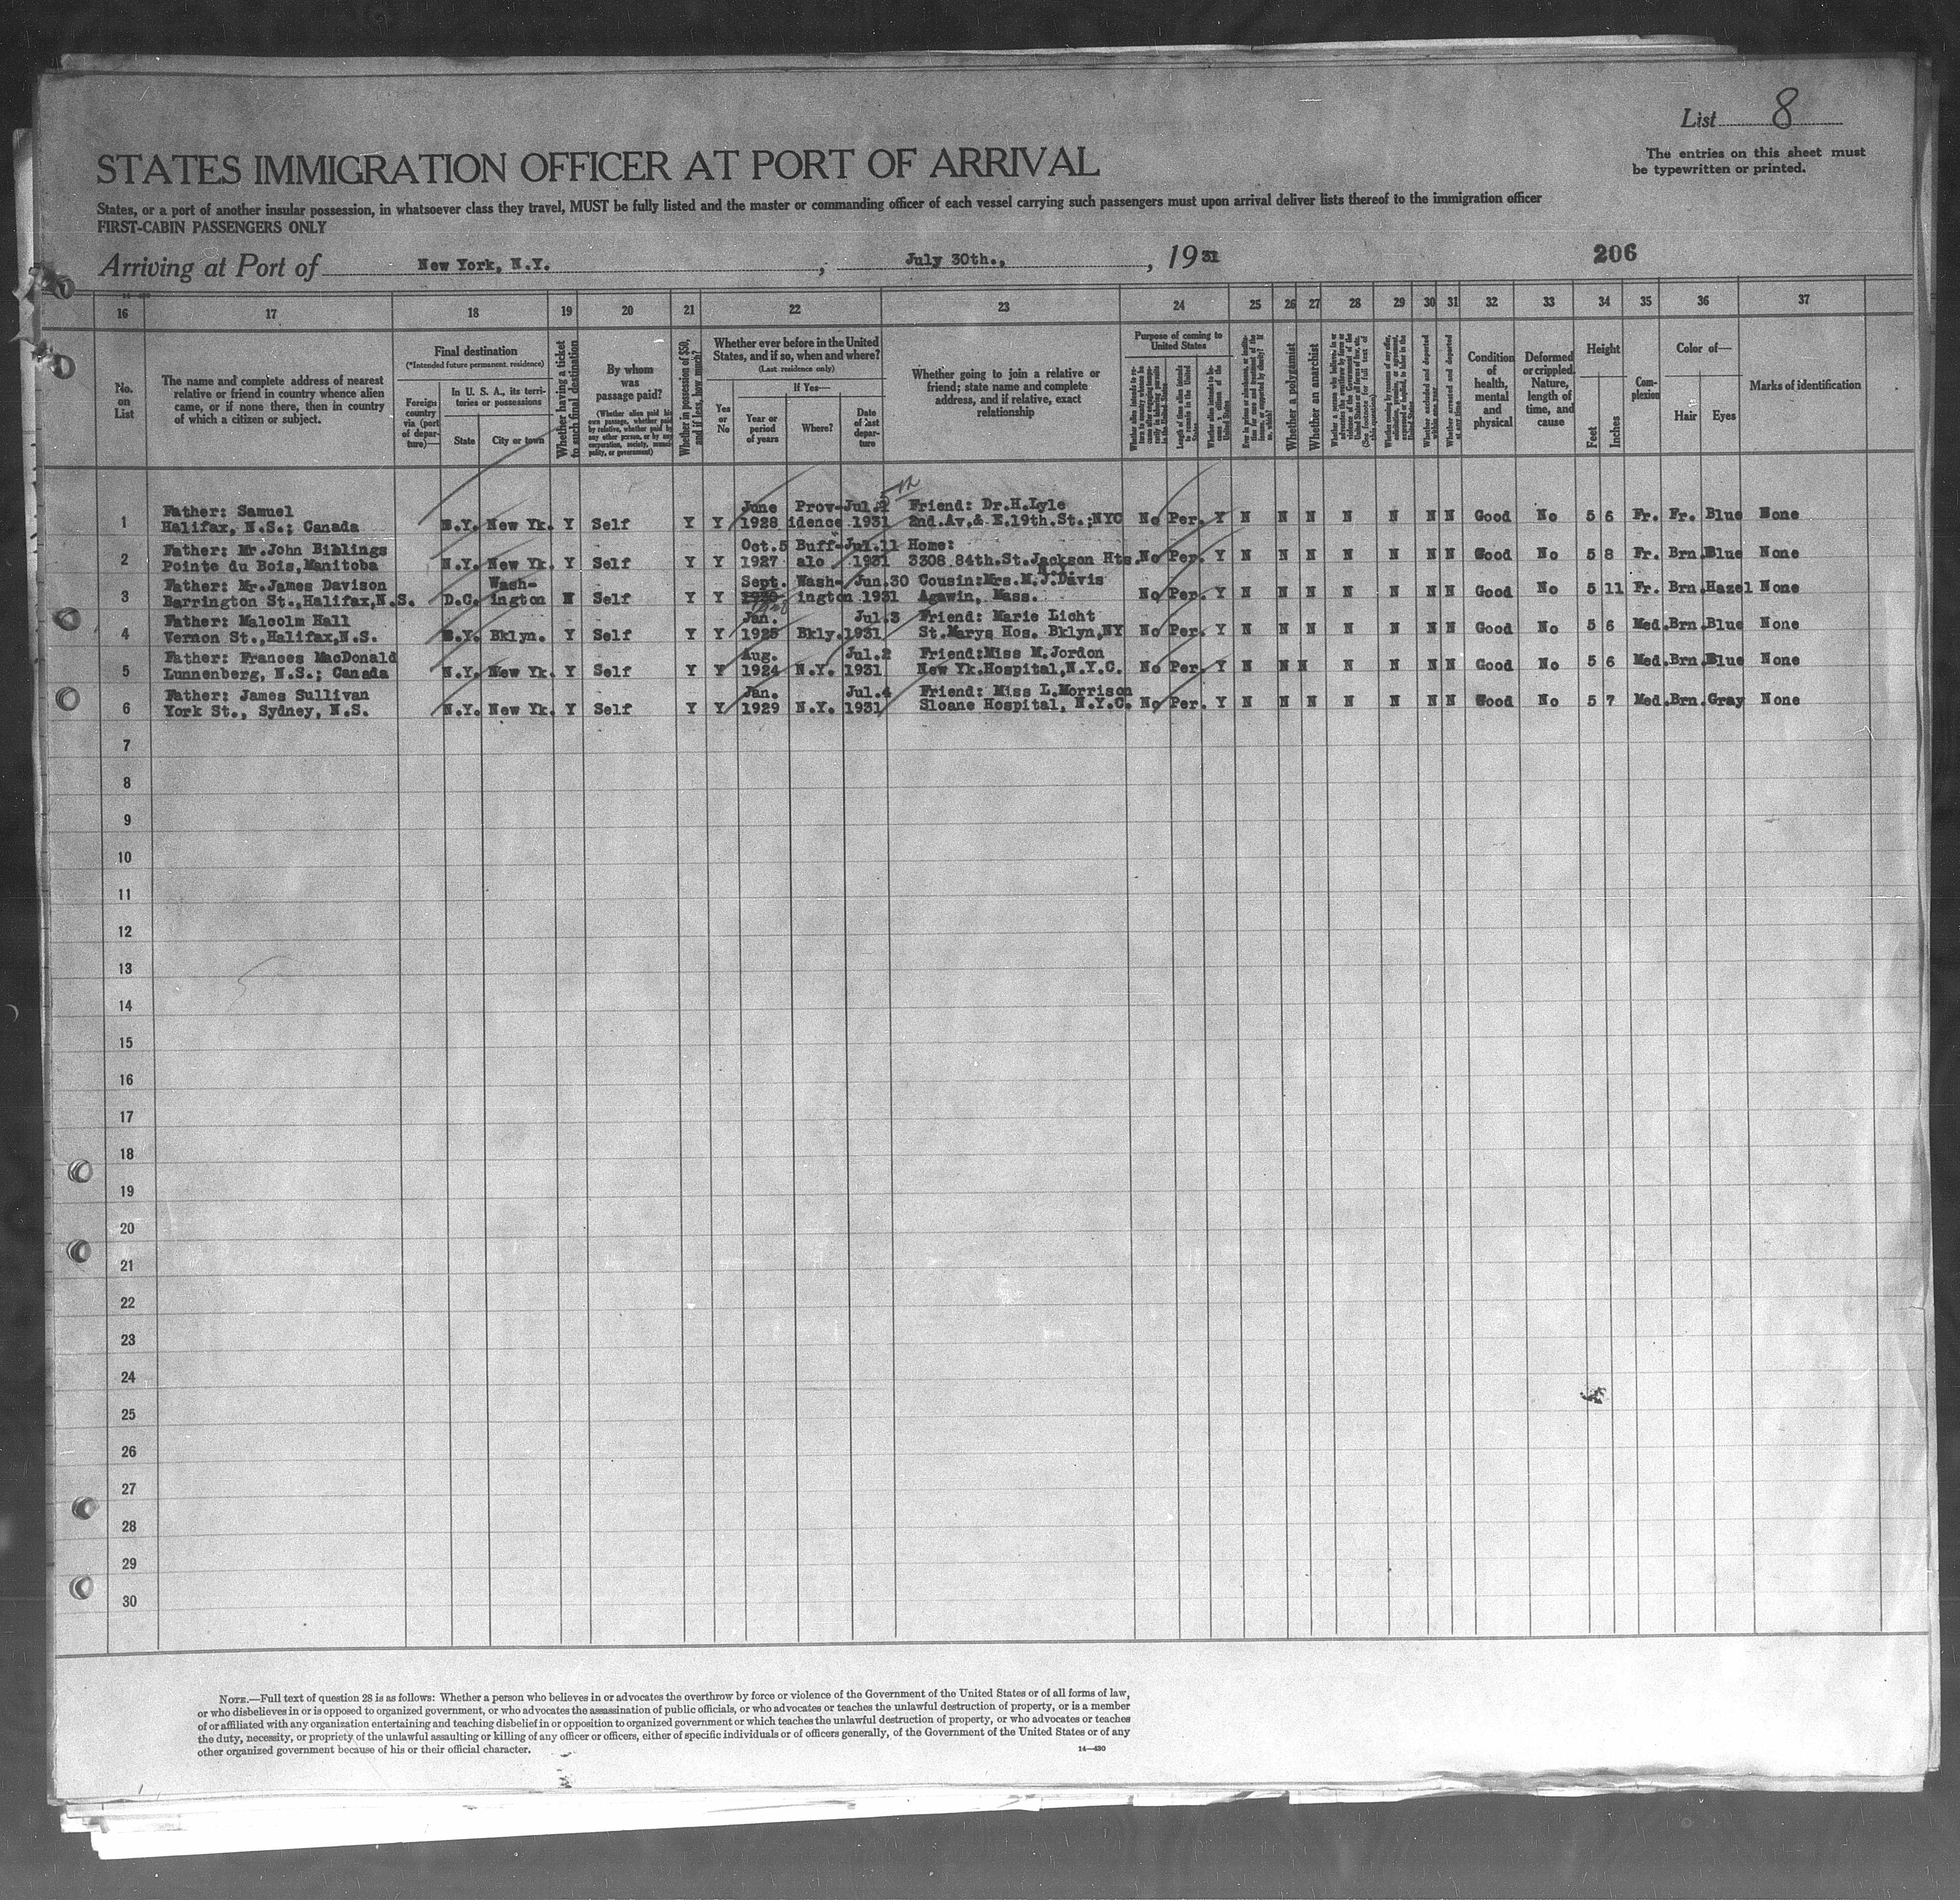 List 8
The entries on this sheet must
be typewritten or printed.
STATES IMMIGRATION OFFICER AT PORT OF ARRIVAL
States, or a port of another insular possession, in whatsoever class they travel, MUST be fully listed and the master or commanding officer of each vessel carrying such passengers must upon arrival deliver lists thereof to the immigration officer
FIRST-CABIN PASSENGERS ONLY
Arriving at Port of New York, N.Y., July 30th., 1931
206
16 17 18 19 20 21 22 23 24 25 26 27 28 29 30 31 32 33 34 35 36 37
No. on List
The name and complete address of nearest
relative or friend in country whence alien
came, or if none there, then in country
of which a citizen or subject.
Final destination
(*Intended future permanent residence)
Foreign country via (port of departure)—
In U. S. A., its territories or possessions
State
City or town
Whether having a ticket to such final destination
By whom was passage paid?
(Whether alien paid his own passage, whether paid by relative, whether paid by any other person, or by any corporation, society, municipality, or government)
Whether in possession of $50, and if less, how much?
Whether ever before in the United
States, and if so, when and where?
(Last residence only)
Yes or No
If Yes—
Year or period of years
Where?
Date of last departure
Whether going to join a relative or
friend; state name and complete
address, and if relative, exact
relationship
Purpose of coming to
United States
Whether a polygamist
Whether an anarchist
Whether excluded and deported within one year
Whether arrested and deported at any time
Condition of health, mental and physical
Deformed or crippled. Nature, length of time, and cause
Height
Feet
Inches
Complexion
Color of—
Hair
Eyes
Marks of identification
Father: Samuel June Prov- Jul.2 Friend: Dr.H.Lyle
1 Halifax, N.S.; Canada N.Y. New Yk. Y Self Y Y 1928 idence 1931 2nd.Av.& E.19th.St.;NYC No Per. Y N N N N N N N Good No 5 6 Fr. Fr. Blue None
Father: Mr.John Biblings Oct.5 Buff- Jul.11 Home:
2 Pointe du Bois,Manitoba N.Y. New Yk. Y Self Y Y 1927 alo 1931 3308 84th.St.Jackson Hts. No Per. Y N N N N N N N Good No 5 8 Fr. Brn. Blue None
Father: Mr.James Davison Wash- Sept. Wash- Jun.30 Cousin:Mrs.M.J.Davis
3 Barrington St.,Halifax,N.S. D.C. ington N Self Y Y 1930 ington 1931 Agawin, Mass. No Per. Y N N N N N N N Good No 5 11 Fr. Brn. Hazel None
Father: Malcolm Hall Jan. Jul.3 Friend: Marie Licht
4 Vernon St.,Halifax,N.S. N.Y. Bklyn. Y Self Y Y 1925 Bkly. 1931 St.Marys Hos. Bklyn,NY No Per. Y N N N N N N N Good No 5 6 Med. Brn. Blue None
Father: Frances MacDonald Aug. Jul.2 Friend:Miss M.Jordon
5 Lunnenberg, N.S.; Canada N.Y. New Yk. Y Self Y Y 1924 N.Y. 1931 New Yk.Hospital,N.Y.C. No Per. Y N N N N N N N Good No 5 6 Med. Brn. Blue None
Father: James Sullivan Jan. Jul.4 Friend: Miss L.Morrison
6 York St., Sydney, N.S. N.Y. New Yk. Y Self Y Y 1929 N.Y. 1931 Sloane Hospital, N.Y.C. No Per. Y N N N N N N N Good No 5 7 Med. Brn. Gray None
7
8
9
10
11
12
13
14
15
16
17
18
19
20
21
22
23
24
25
26
27
28
29
30
NOTE.—Full text of question 28 is as follows: Whether a person who believes in or advocates the overthrow by force or violence of the Government of the United States or of all forms of law,
or who disbelieves in or is opposed to organized government, or who advocates the assassination of public officials, or who advocates or teaches the unlawful destruction of property, or is a member
of or affiliated with any organization entertaining and teaching disbelief in or opposition to organized government or which teaches the unlawful destruction of property, or who advocates or teaches
the duty, necessity, or propriety of the unlawful assaulting or killing of any officer or officers, either of specific individuals or of officers generally, of the Government of the United States or of any
other organized government because of his or their official character.
14—430